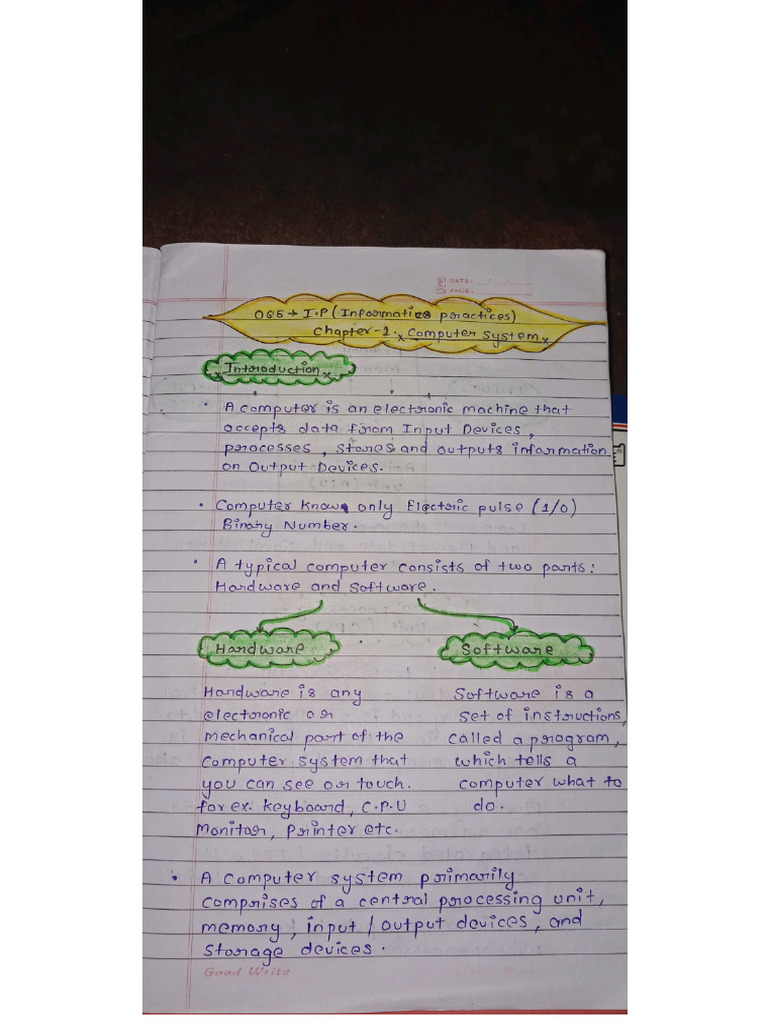 DATE:
PAGE:
065 → I.P (Informatics practices)
Chapter-1. Computer System
Introduction
• A computer is an electronic machine that
accepts data from Input Devices,
processes, stores and outputs information
on Output Devices.
• Computer knows only Electric pulse (1/0)
Binary Number.
• A typical computer consists of two parts:
Hardware and Software.
Hardware
Hardware is any
electronic or
mechanical part of the
computer system that
you can see or touch.
for ex: keyboard, C.P.U
Monitor, Printer etc.
Software
Software is a
set of instructions,
called a program,
which tells a
computer what to
do.
• A computer system primarily
comprises of a central processing unit,
memory, input / output devices, and
storage devices.
Good Write